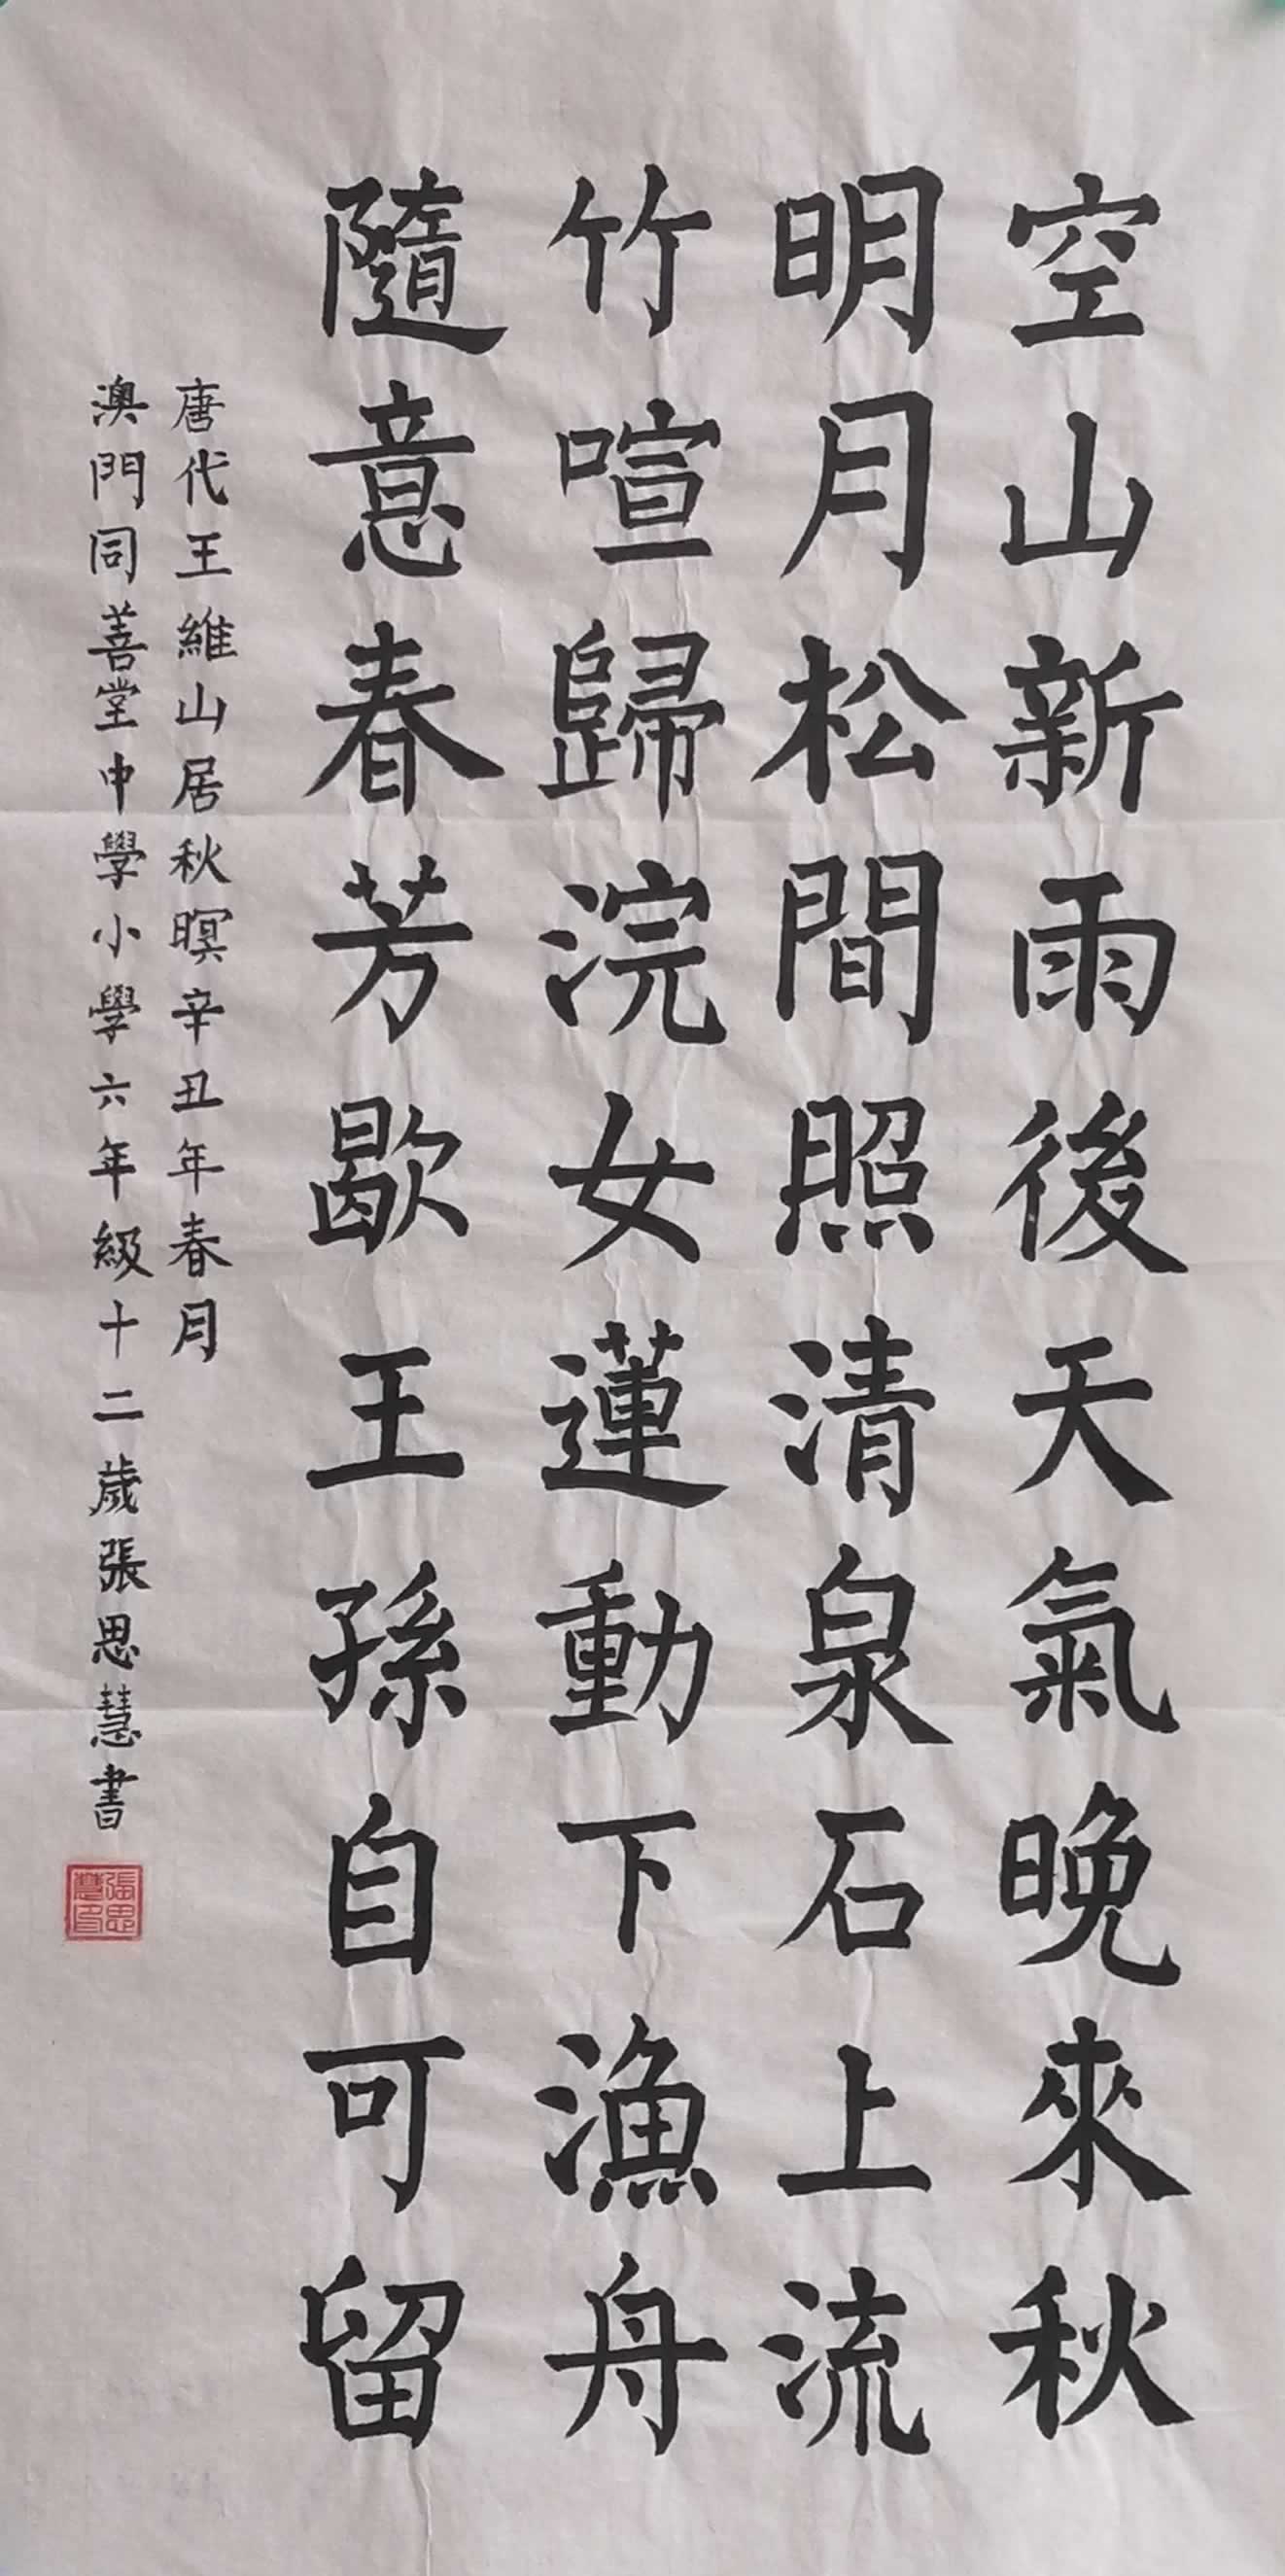 空山新雨後天氣晚來秋
明月松間照清泉石上流
竹喧歸浣女蓮動下漁舟
隨意春芳歇王孫自可留
唐代王維山居秋暝辛丑年春月
澳門同善堂中學小學六年級十二歲張思慧書
張思慧印